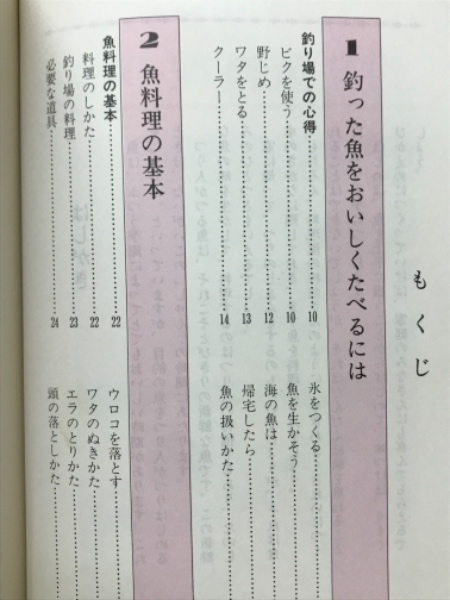 もくじ
1 釣った魚をおいしくたべるには
釣り場での心得……10
ビクを使う……10
野じめ……12
ワタをとる……13
クーラー……14
氷をつくる……
魚を生かそう……
海の魚は……
帰宅したら……
魚の扱いかた……
2 魚料理の基本
魚料理の基本……22
料理のしかた……22
釣り場の料理……23
必要な道具……24
ウロコを落とす……
ワタのぬきかた……
エラのとりかた……
頭の落としかた……